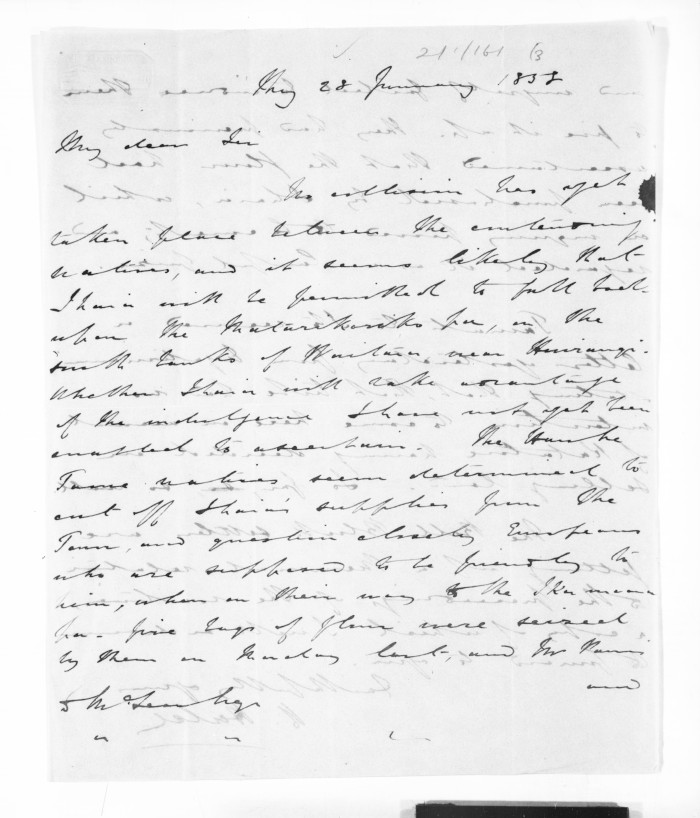 21/161 (3
Thy 28 January 1858
My dear Sir
No collision has yet
taken place between the contending
natives, and it seems likely that
Ihaia will be permitted to fall back
upon the Mataitawa pa, on the
south banks of Waitara near Huirangi.
Whether Ihaia will take advantage
of the indulgence I have not yet been
enabled to ascertain. The
natives seem determined to
cut off Ihaia's supplies from the
Town, and question closely Europeans
who are supposed to be friendly to
him, when on their way to the Ika moana
pa. Five bags of flour were seized
by them on Monday last, and Mr
and
D McLean Esqr
" " "